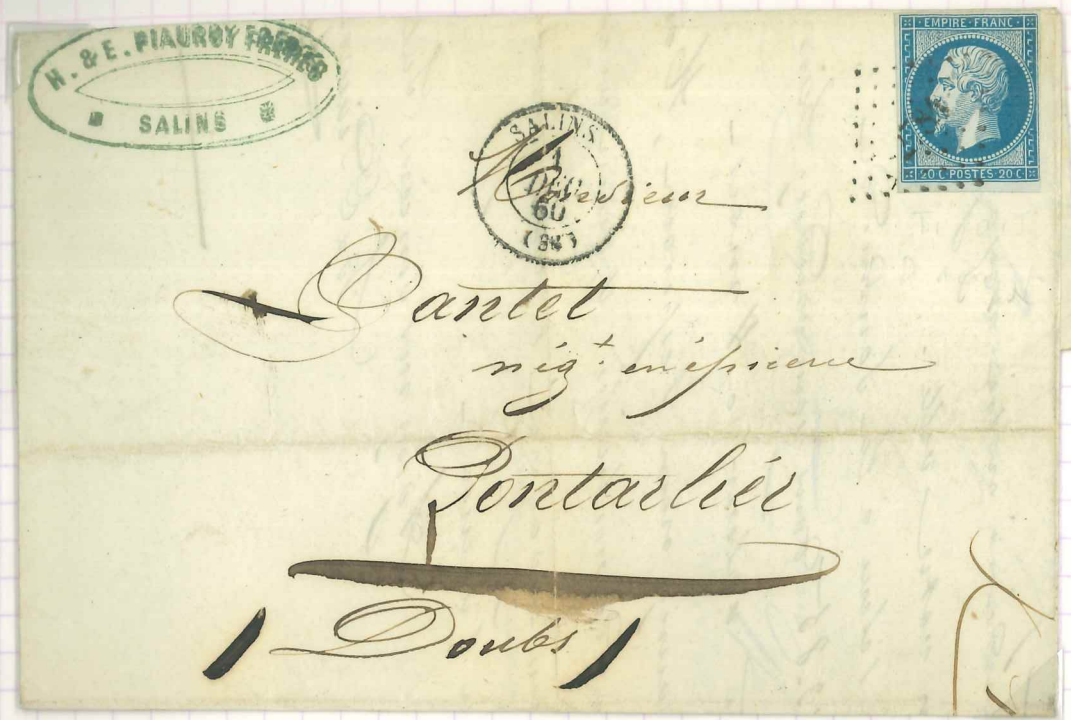 H. & E. PIAUROY FRERES
SALINS
EMPIRE · FRANC ·
20 C · POSTES · 20 C
SALINS
1
DEC
60
(38)
Monsieur
Pantet
nég.t en épicerie
Pontarlier
Doubs